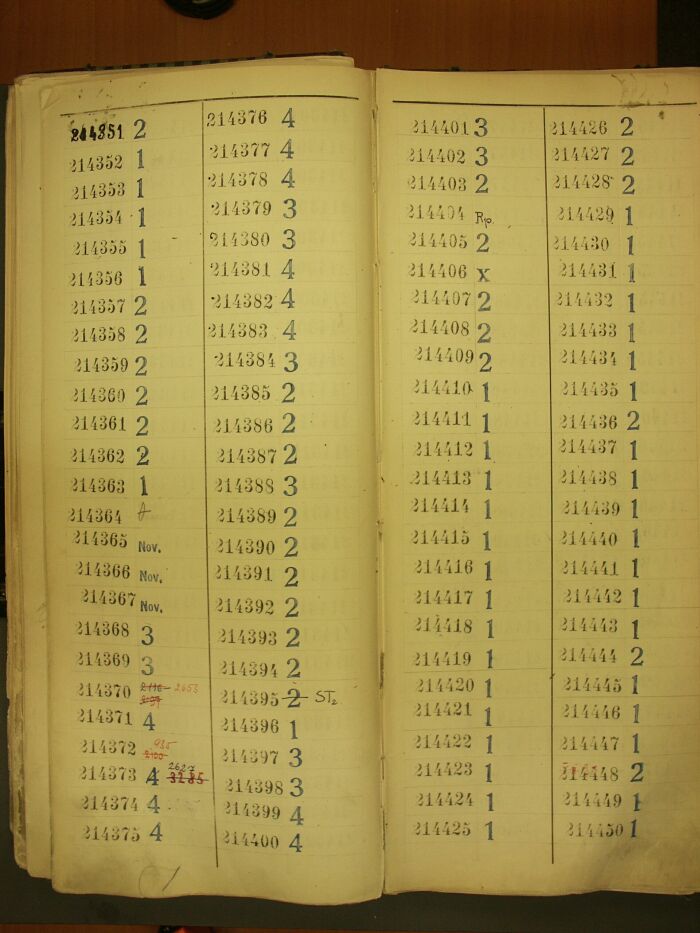 214351 2
214352 1
214353 1
214354 1
214355 1
214356 1
214357 2
214358 2
214359 2
214360 2
214361 2
214362 2
214363 1
214364
214365 Nov.
214366 Nov.
214367 Nov.
214368 3
214369 3
214370 2653
214371 4
214372 935
2100
214373 4 2627 3285
214374 4
214375 4
214376 4
214377 4
214378 4
214379 3
214380 3
214381 4
214382 4
214383 4
214384 3
214385 2
214386 2
214387 2
214388 3
214389 2
214390 2
214391 2
214392 2
214393 2
214394 2
214395 2 ST2
214396 1
214397 3
214398 3
214399 4
214400 4
214401 3
214402 3
214403 2
214404 Rp.
214405 2
214406 x
214407 2
214408 2
214409 2
214410 1
214411 1
214412 1
214413 1
214414 1
214415 1
214416 1
214417 1
214418 1
214419 1
214420 1
214421 1
214422 1
214423 1
214424 1
214425 1
214426 2
214427 2
214428 2
214429 1
214430 1
214431 1
214432 1
214433 1
214434 1
214435 1
214436 2
214437 1
214438 1
214439 1
214440 1
214441 1
214442 1
214443 1
214444 2
214445 1
214446 1
214447 1
214448 2
214449 1
214450 1